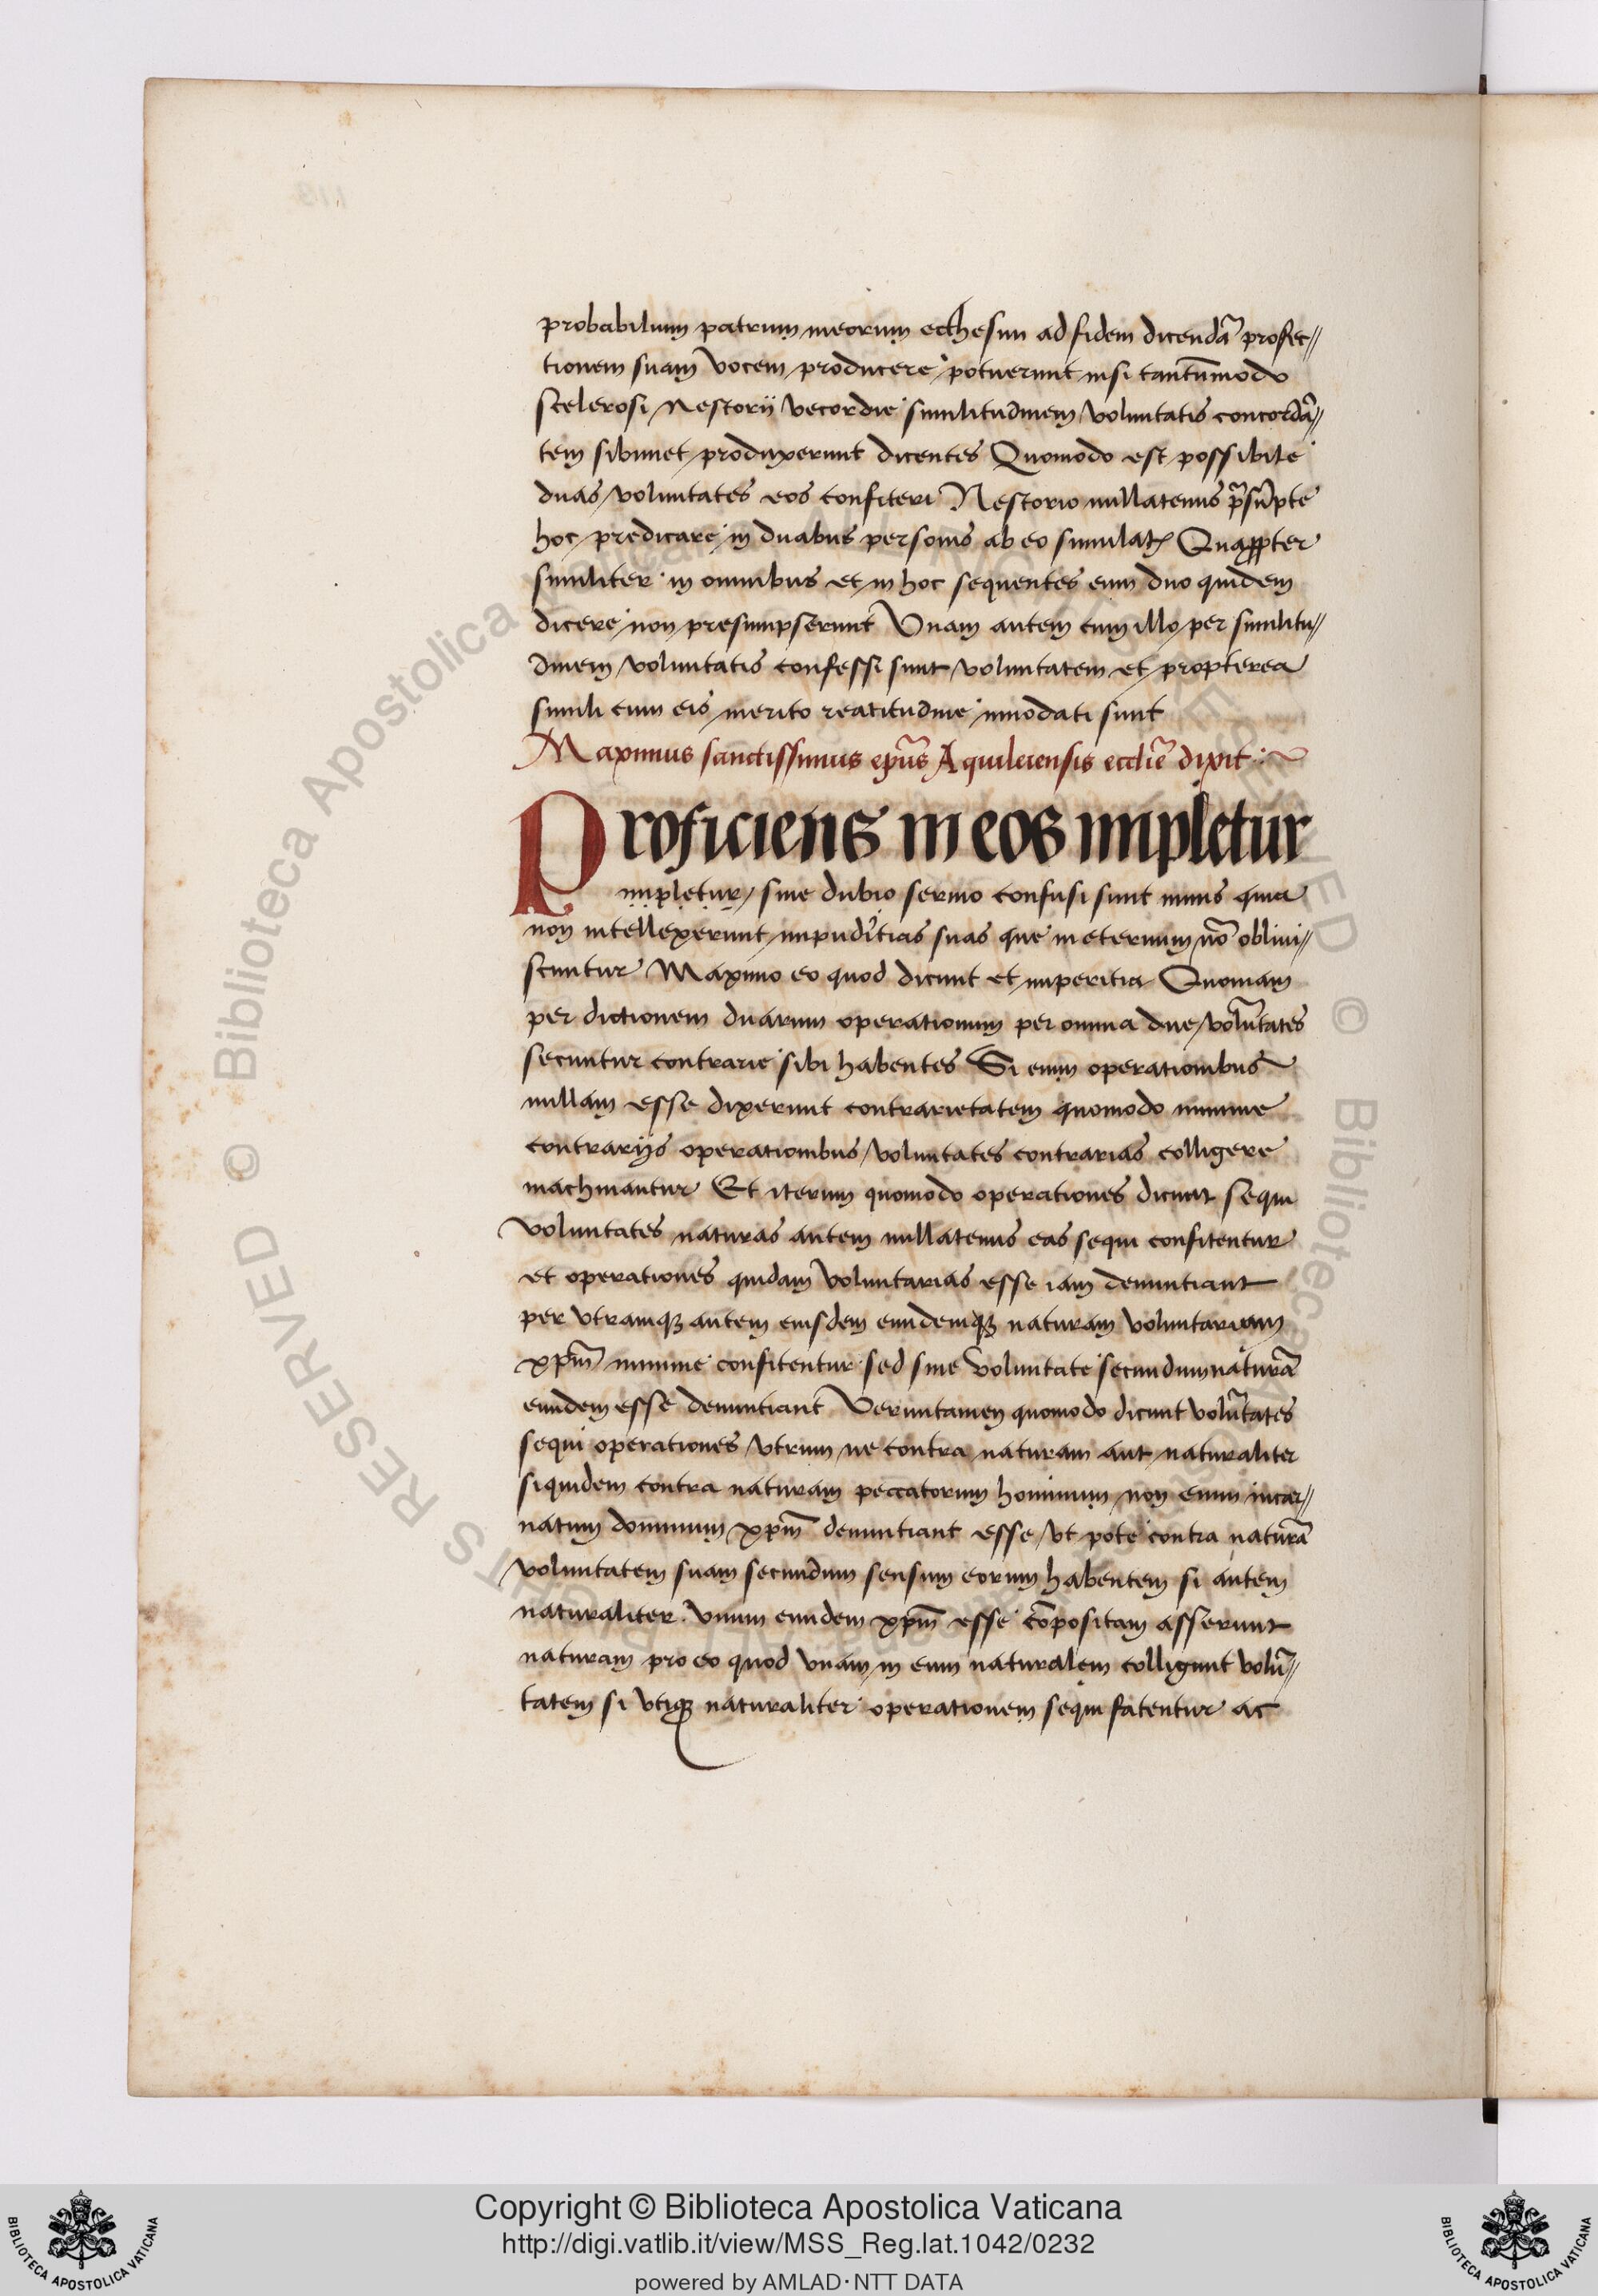 probabilium patrum meorum ecthesim ad fidem dicendā profec//
tionem suam vocem producere potuerunt nisi tantūmodo
scelerosi Nestorij vecordie similitudinem voluntatis concordā//
tem sibimet produxerunt dicentes Quomodo est possibile
duas voluntates eos confiteri Nestorio nullatenus p̄sūpte
hoc predicare in duabus personis ab eo simulatꝭ Quaꝓpter
similiter in omnibus et in hoc sequentes eum duo quidem
dicere non presumpserunt Vnam autem cum illo per similitu//
dinem voluntatis confessi sunt voluntatem et propterea
simili cum eis merito reatitudine innodati sunt
Maximus sanctissimus ep̄us Aquileiensis eccl̄ie dixit
Proficiens in eos impletur
impletur sine dubio sermo confusi sunt nimis quia
non intellexerunt impudicitias suas que in eternum nō oblivi//
scuntur Maximo eo quod dicunt et imperitia Quoniam
per dictionem duarum operationum per omnia due volūtates
secuntur contrarie sibi habentes Si enim operationibus
nullam esse dixerunt contrarietatem quomodo minime
contrarijs operationibus voluntates contrarias colligere
machinantur Et iterum quomodo operationes dicunt sequi
voluntates naturas autem nullatenus eas sequi confitentur
et operationes quidam voluntarias esse iam denuntiant
per vtramqꝫ autem eiusdem eiudemqꝫ naturam voluntariam
xp̄m minime confitentur sed sine voluntate secundum naturā
eundem esse denuntiant Veruntamen quomodo dicunt volūtates
sequi operationes vtrum ne contra naturam aut naturaliter
siquidem contra naturam peccatorum hominum non enim incar//
natum dominum xp̄m denuntiant esse vt pote contra naturā
voluntatem suam secundum sensum eorum habentem si autem
naturaliter vnum eundem xp̄m esse cōpositam asserunt
naturam pro eo quod vnam in eum naturalem colligunt volū//
tatem si vtiqꝫ naturaliter operationem sequi fatentur ac
Copyright © Biblioteca Apostolica Vaticana
http://digi.vatlib.it/view/MSS_Reg.lat.1042/0232
powered by AMLAD·NTT DATA
BIBLIOTECA APOSTOLICA VATICANA
BIBLIOTECA APOSTOLICA VATICANA